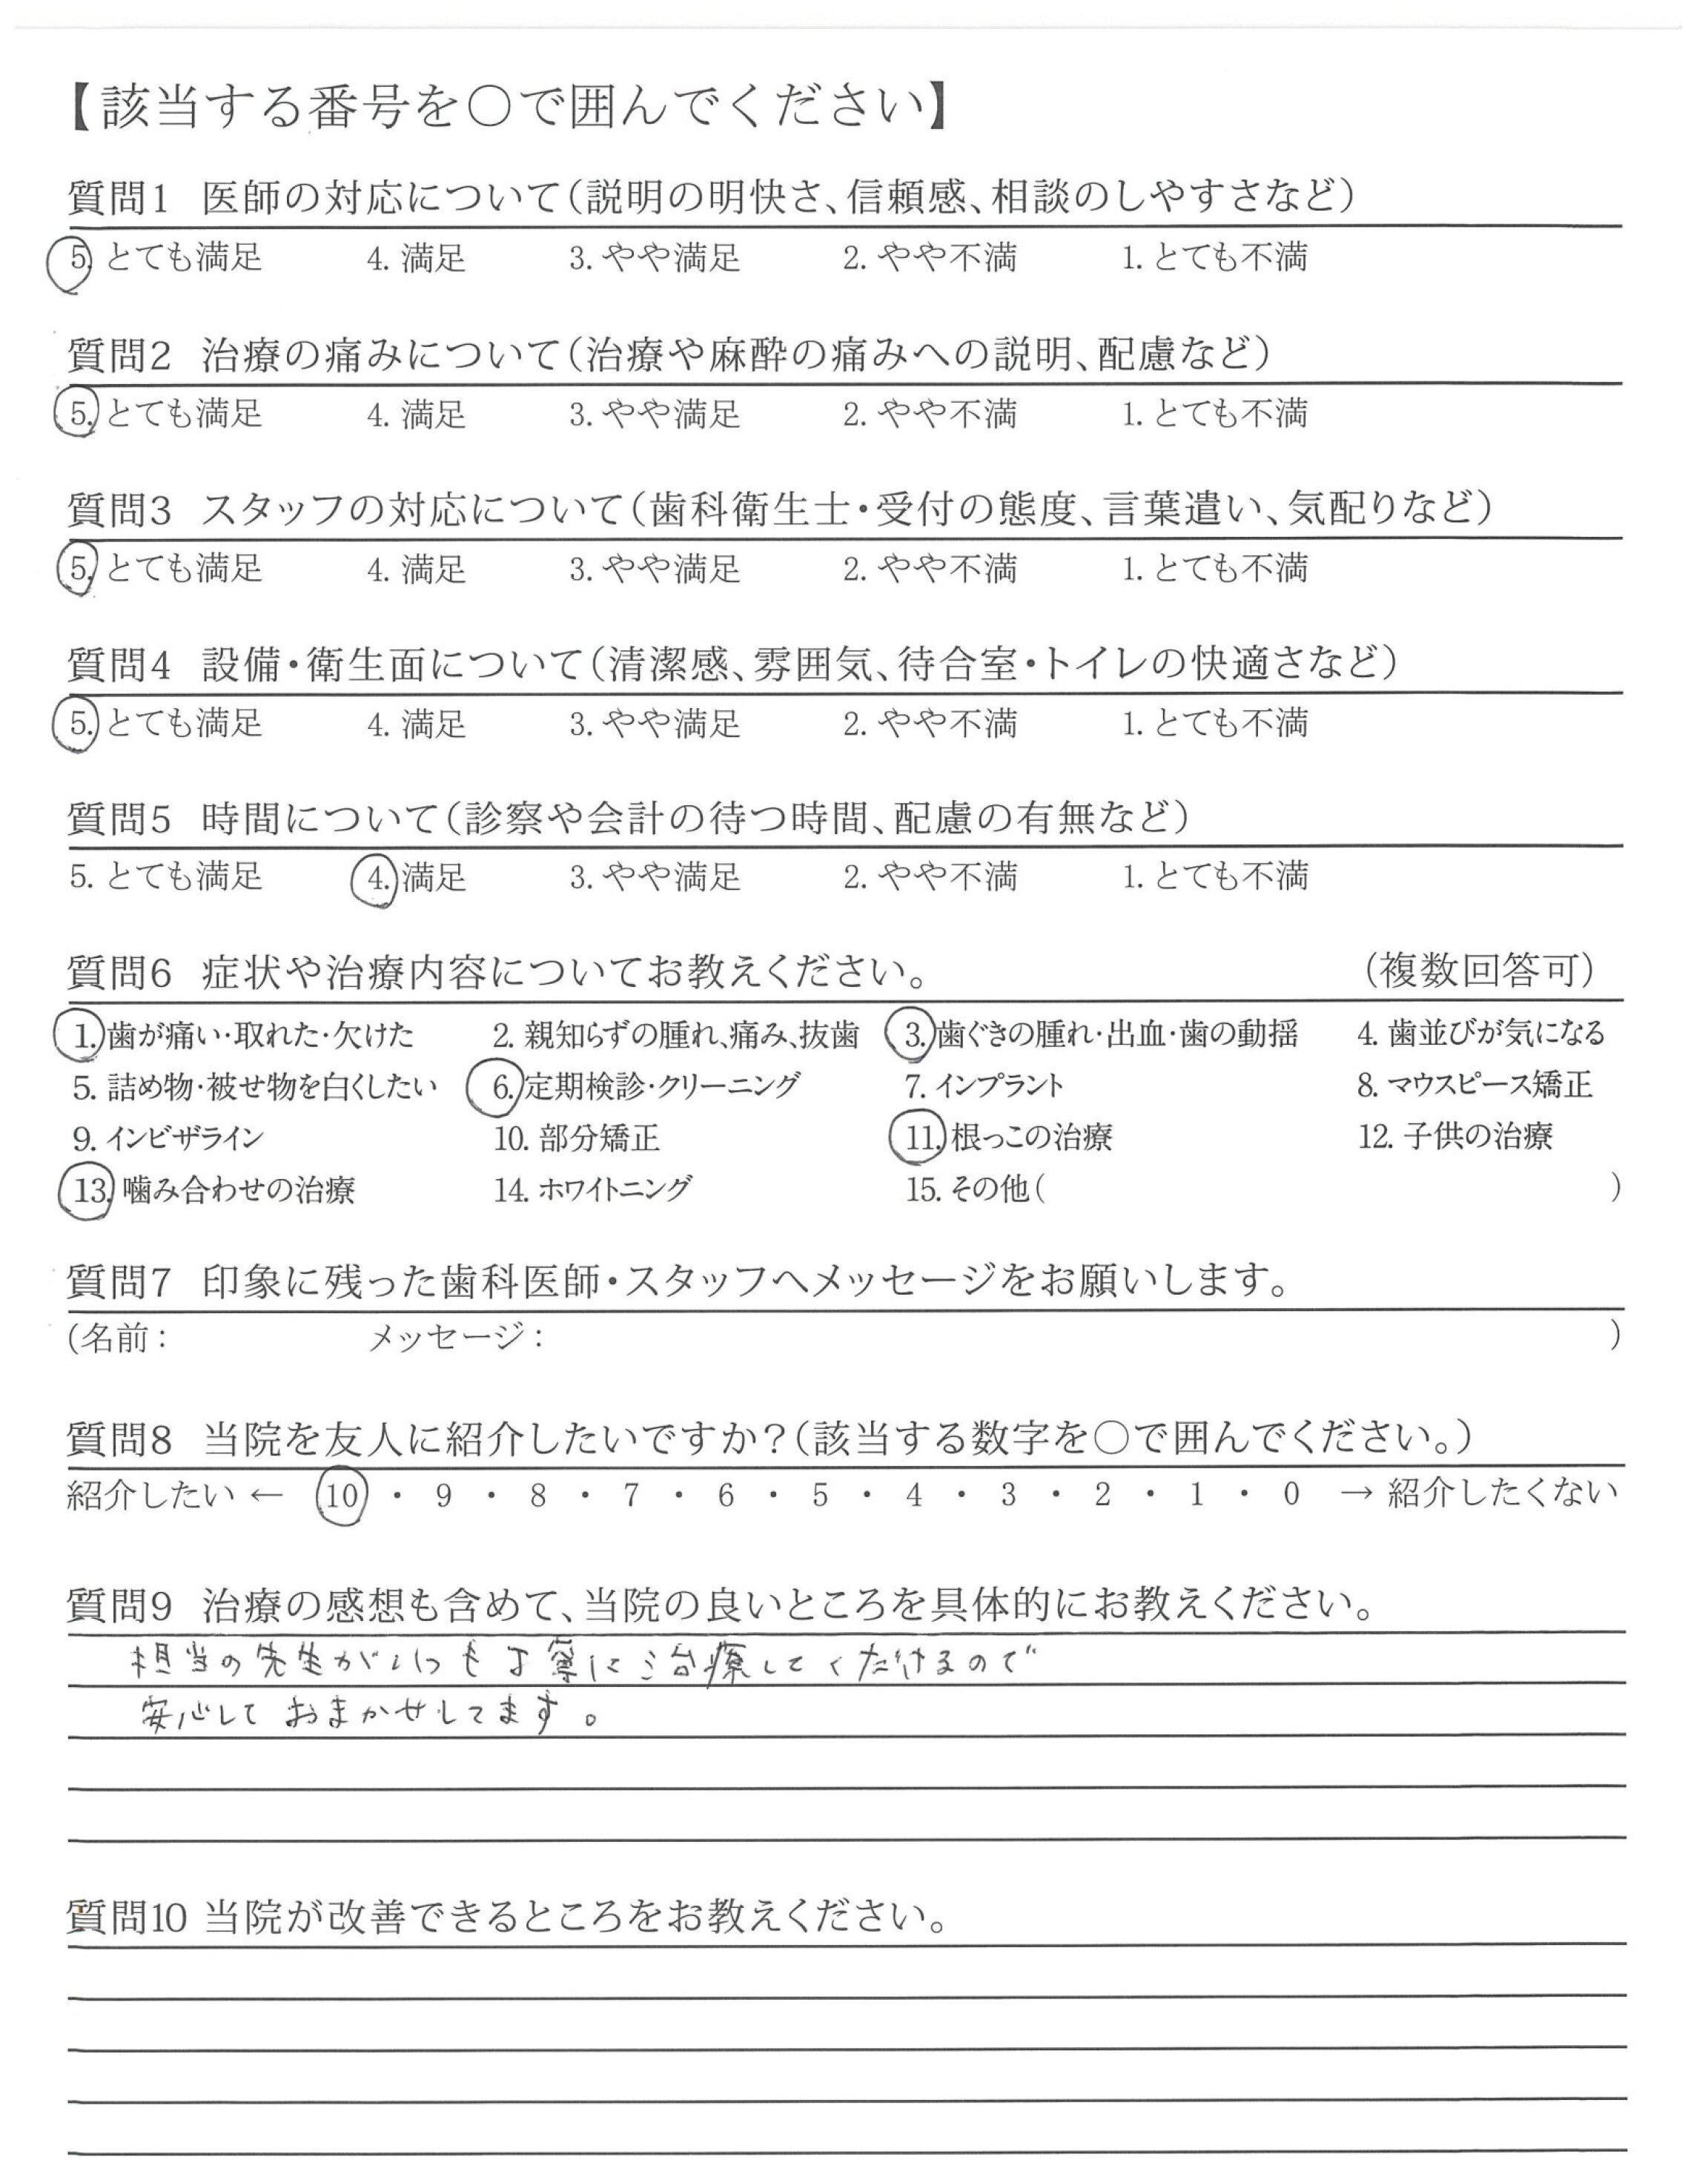 【該当する番号を〇で囲んでください】
質問1 医師の対応について(説明の明快さ、信頼感、相談のしやすさなど)
5. とても満足 4. 満足 3. やや満足 2. やや不満 1. とても不満
質問2 治療の痛みについて(治療や麻酔の痛みへの説明、配慮など)
5. とても満足 4. 満足 3. やや満足 2. やや不満 1. とても不満
質問3 スタッフの対応について(歯科衛生士・受付の態度、言葉遣い、気配りなど)
5. とても満足 4. 満足 3. やや満足 2. やや不満 1. とても不満
質問4 設備・衛生面について(清潔感、雰囲気、待合室・トイレの快適さなど)
5. とても満足 4. 満足 3. やや満足 2. やや不満 1. とても不満
質問5 時間について(診察や会計の待つ時間、配慮の有無など)
5. とても満足 4. 満足 3. やや満足 2. やや不満 1. とても不満
質問6 症状や治療内容についてお教えください。 (複数回答可)
1. 歯が痛い・取れた・欠けた 2. 親知らずの腫れ、痛み、抜歯 3. 歯ぐきの腫れ・出血・歯の動揺 4. 歯並びが気になる
5. 詰め物・被せ物を白くしたい 6. 定期検診・クリーニング 7. インプラント 8. マウスピース矯正
9. インビザライン 10. 部分矯正 11. 根っこの治療 12. 子供の治療
13. 噛み合わせの治療 14. ホワイトニング 15. その他( )
質問7 印象に残った歯科医師・スタッフへメッセージをお願いします。
(名前: メッセージ: )
質問8 当院を友人に紹介したいですか?(該当する数字を〇で囲んでください。)
紹介したい ← 10 ・ 9 ・ 8 ・ 7 ・ 6 ・ 5 ・ 4 ・ 3 ・ 2 ・ 1 ・ 0 → 紹介したくない
質問9 治療の感想も含めて、当院の良いところを具体的にお教えください。
担当の先生がいつも丁寧に治療してくださるので
安心しておまかせしてます。
質問10 当院が改善できるところをお教えください。